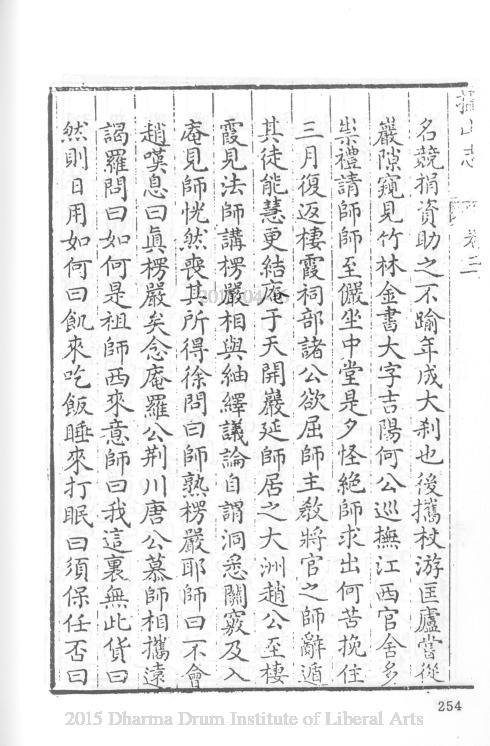 攝山志
卷三
名競捐資助之不踰年成大刹也後攜杖游匡廬嘗從
巖隙窺見竹林金書大字吉陽何公巡撫江西官舍多
祟禮請師師至儼坐中堂是夕怪絕師求出何苦挽住
三月復返棲霞祠部諸公欲屈師主教將官之師辭遁
其徒能慧更結庵于天開巖延師居之大洲趙公至棲
霞見法師講楞嚴相與紬繹議論自謂洞悉關竅及入
庵見師恍然喪其所得徐問曰師熟楞嚴耶師曰不會
趙嘆息曰眞楞嚴矣念庵羅公荆川唐公慕師相攜遠
謁羅問曰如何是祖師西來意師曰我這裏無此貨曰
然則日用如何曰飢來吃飯睡來打眠曰須保任否曰
254
2015 Dharma Drum Institute of Liberal Arts